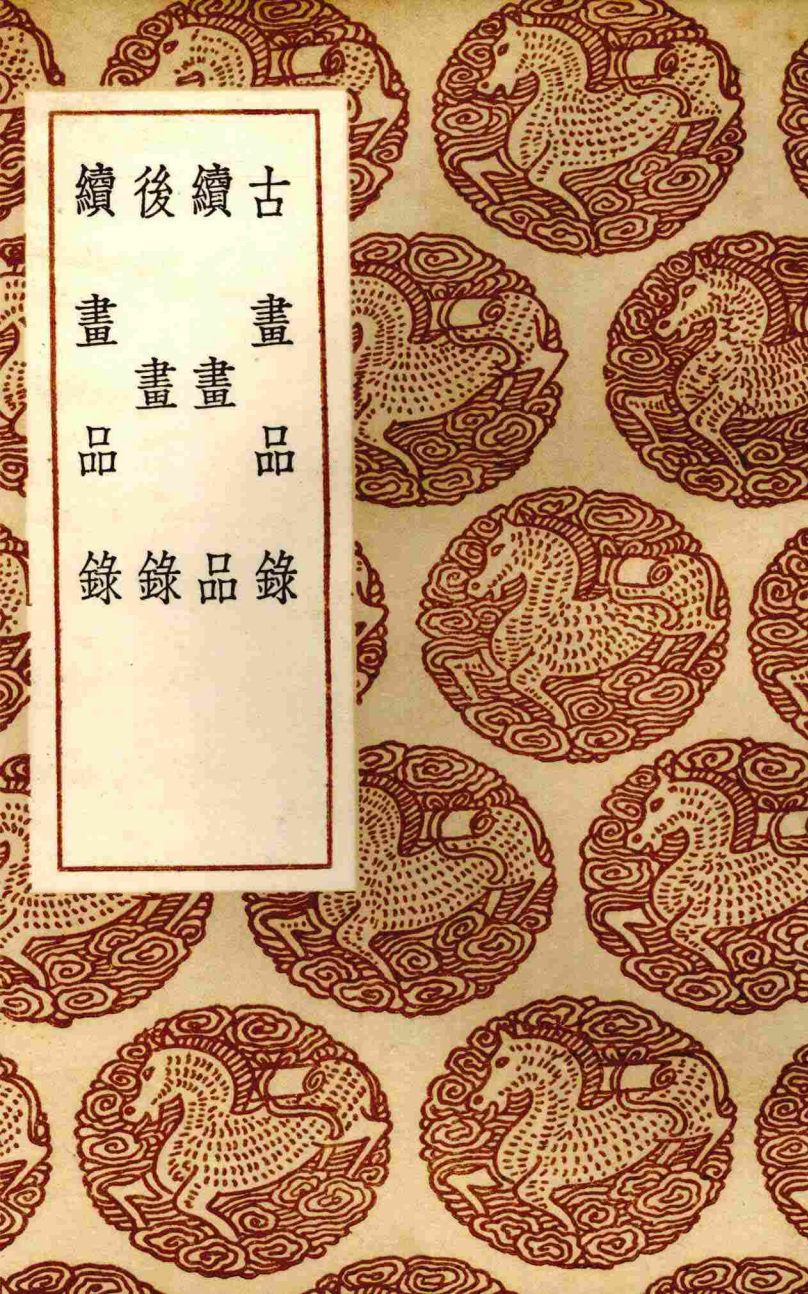 古畫品錄
續畫品
後畫錄
續畫品錄